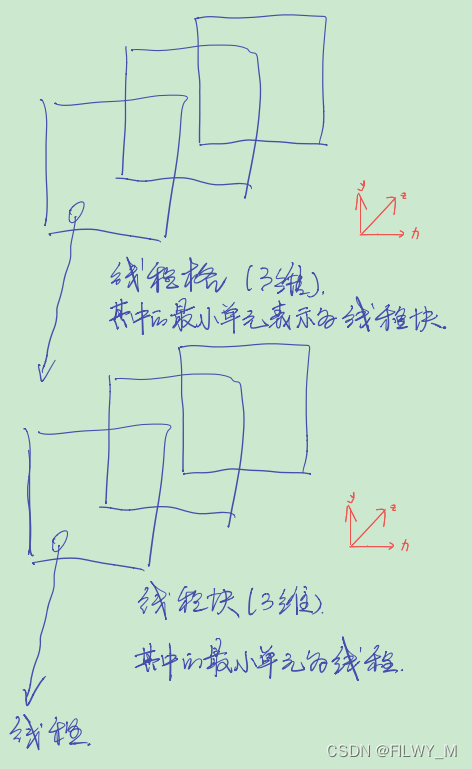 y
z
n
线程格 (3维).
其中的最小单元表示为线程块.
y
z
n
线程块(3维)
其中的最小单元为线程.
线程.
CSDN @FILWY_M